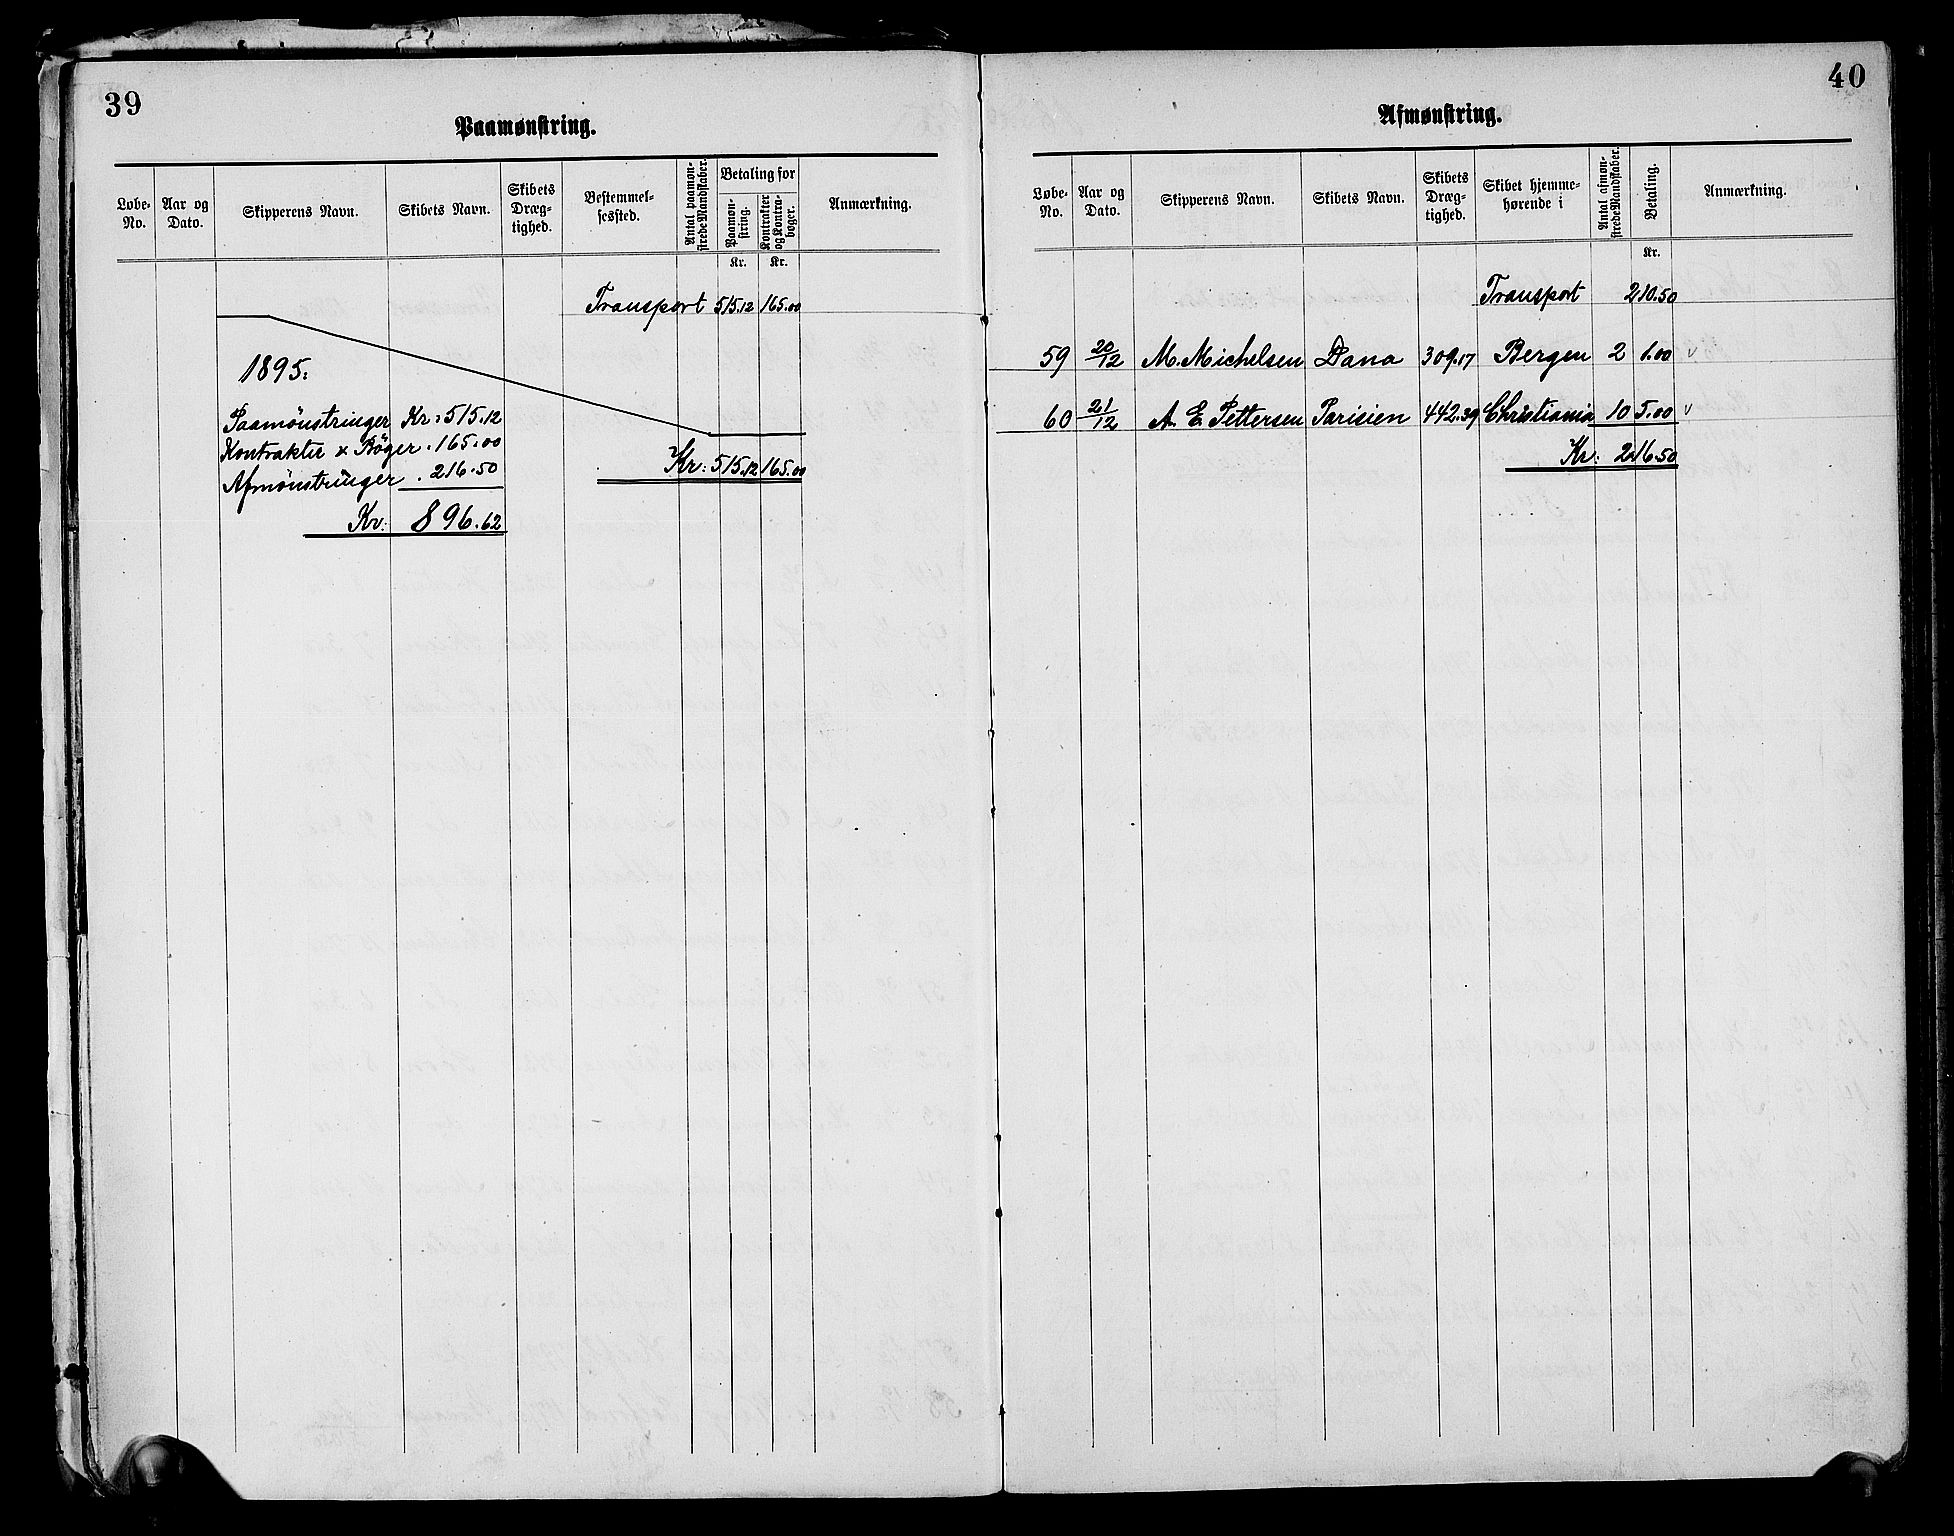 39
Paamønstring.
Løbe-No.
Aar og Dato.
Skipperens Navn.
Skibets Navn.
Skibets Dræg-tighed.
Bestemmel-sessted.
Antal paamøn-strede Mandskaber.
Betaling for
Paamøn-string.
Kontrakter og Kontra-bøger.
Anmærkning.
Kr. Kr.
Transport 515.12 165.00
1895:
Paamönstringer Kr: 515.12
Kontrakter & Böger . 165.00
Afmönstringer . 216.50
Kr: 896.62
Kr: 515.12 165.00
40
Afmønstring.
Løbe-No.
Aar og Dato.
Skipperens Navn.
Skibets Navn.
Skibets Dræg-tighed.
Skibet hjemme-hørende i
Antal afmøn-strede Mandskaber.
Betaling.
Anmærkning.
Kr.
Transport 210.50
59 20/12 M. Michelsen Dana 309.17 Bergen 2 1.00 v
60 21/12 A. E. Pettersen Parisien 442.39 Christiania 10 5.00 v
Kr: 216.50